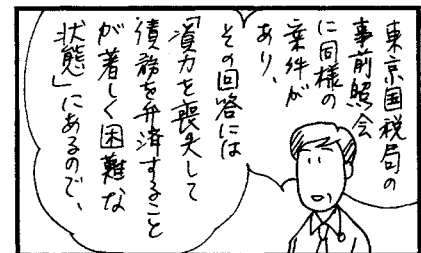 東京国税局の
事前照会
に同様の
案件が
あり、
その回答には
「資力を喪失して
債務を弁済すること
が著しく困難な
状態」にあるので、